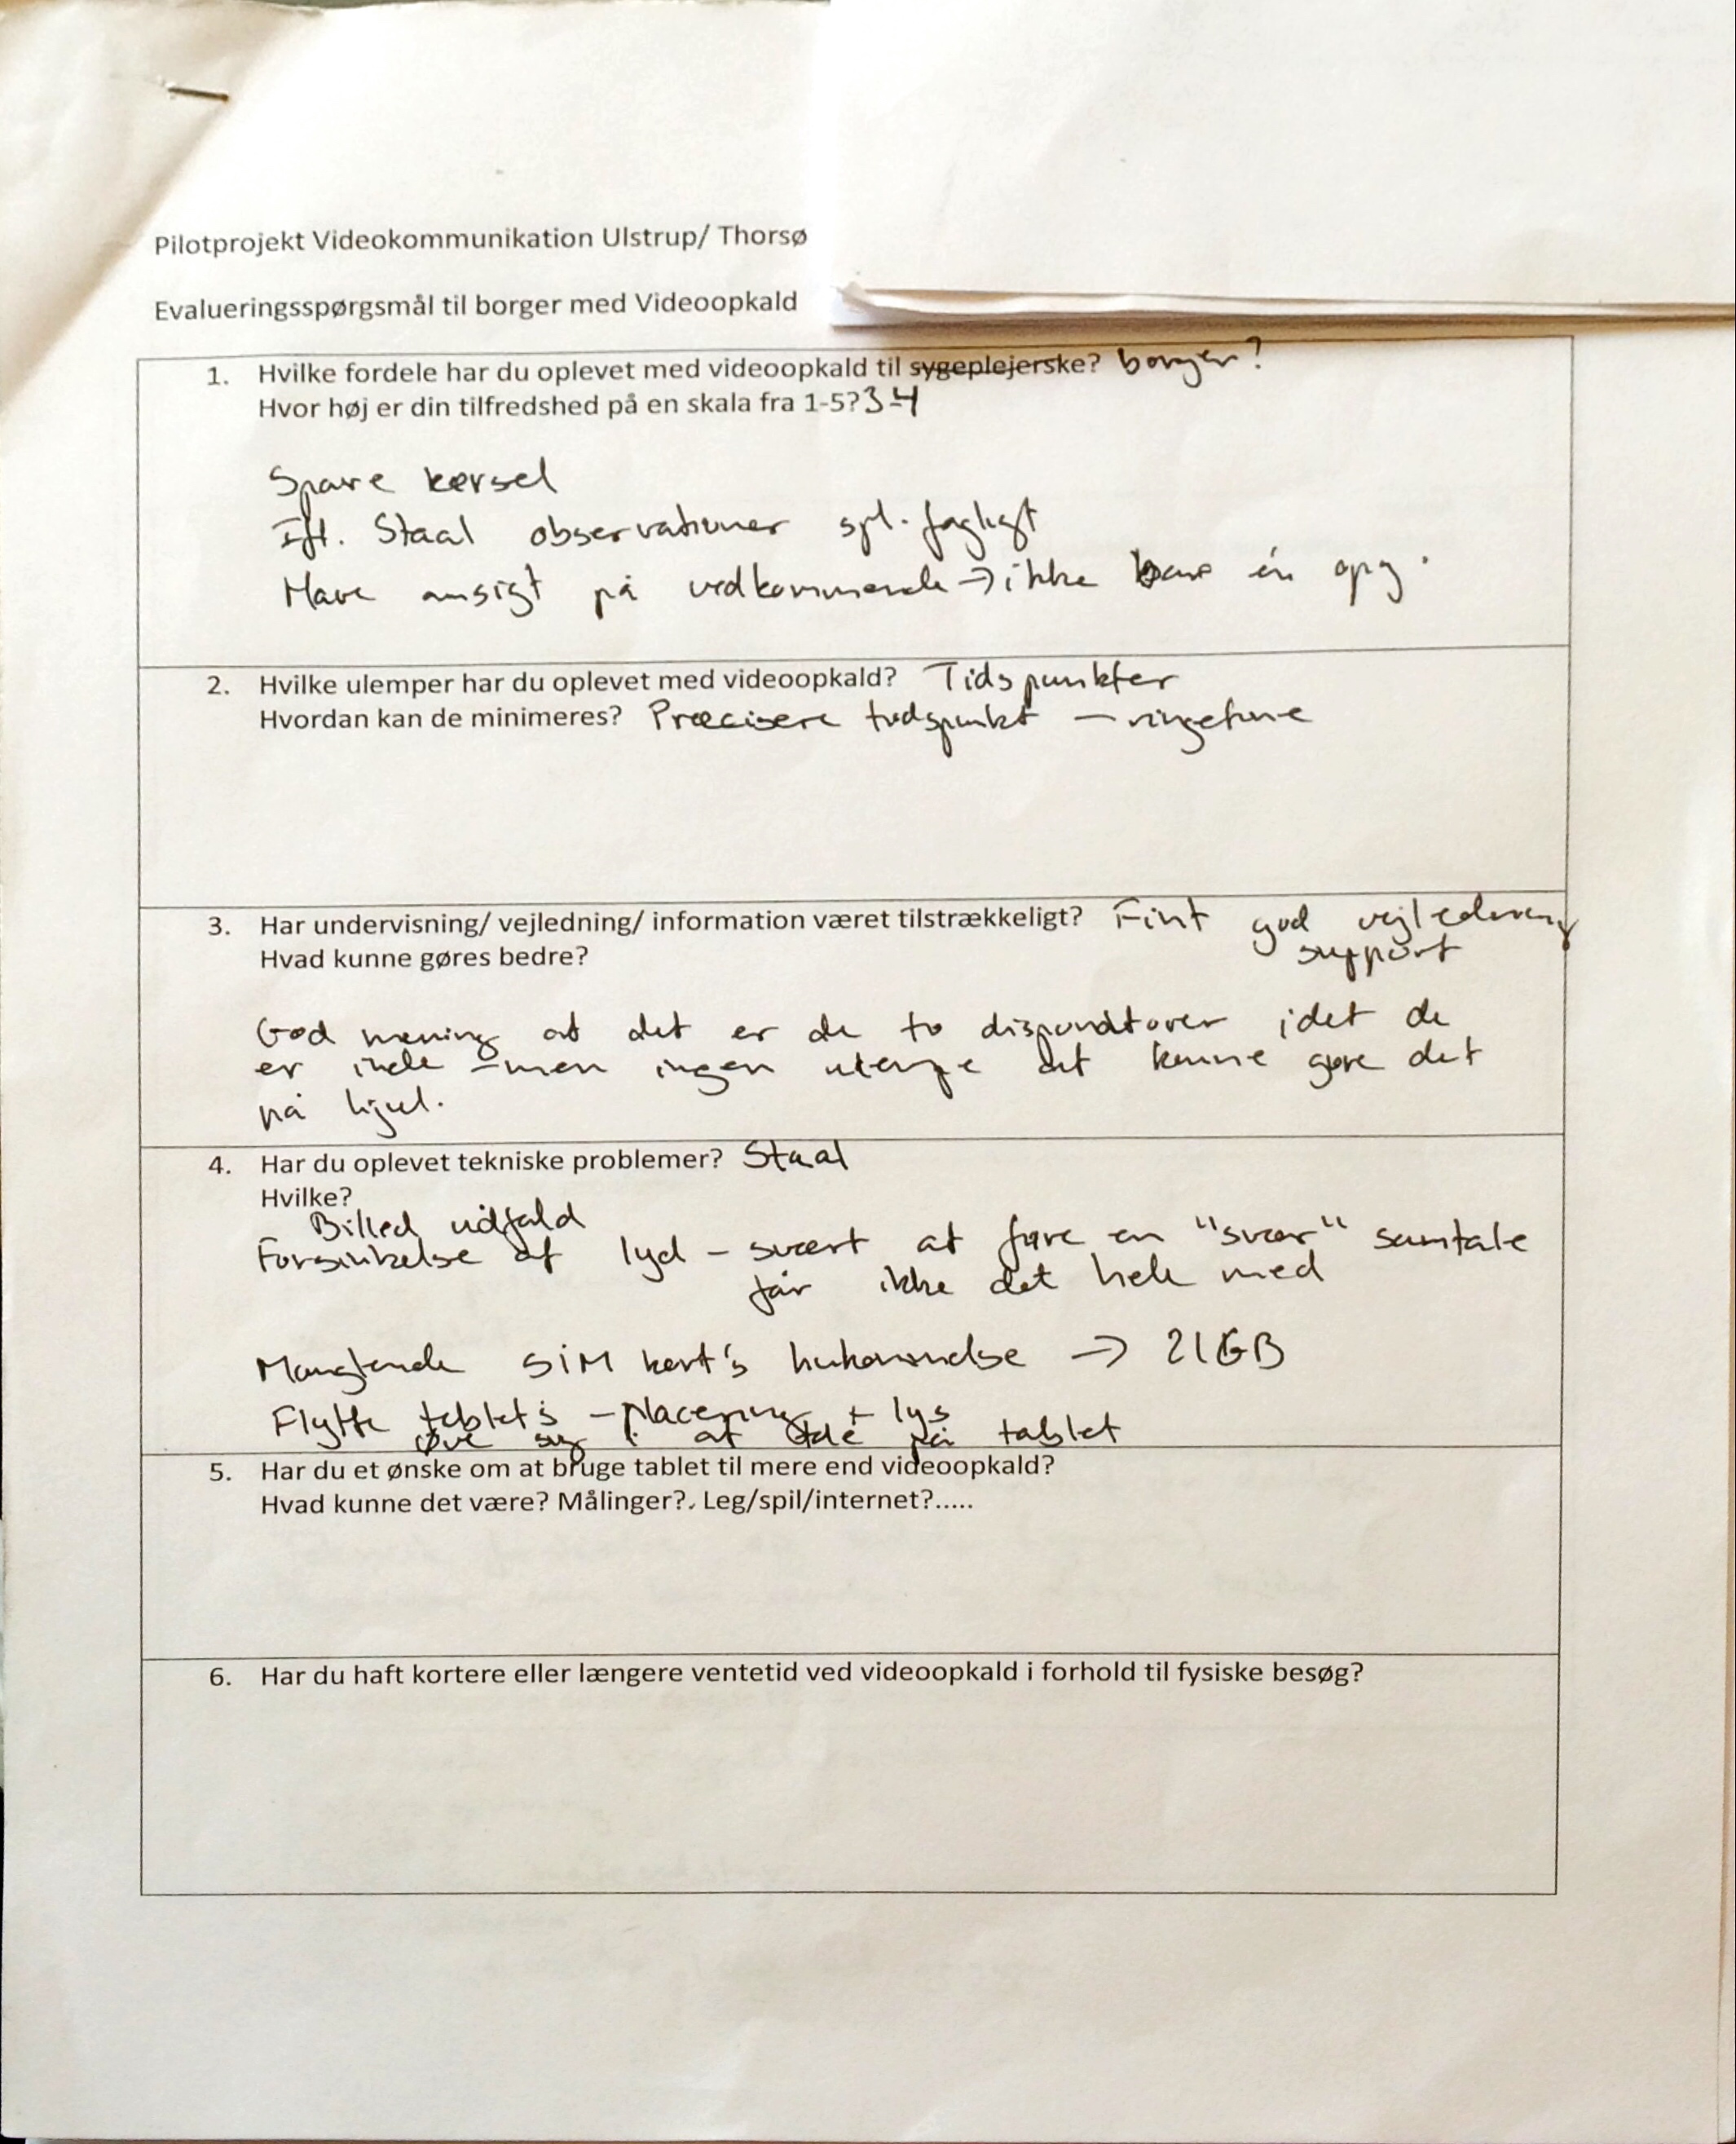 Pilotprojekt Videokommunikation Ulstrup/ Thorsø
Evalueringsspørgsmål til borger med Videoopkald
1. Hvilke fordele har du oplevet med videoopkald til sygeplejerske? borger?
Hvor høj er din tilfredshed på en skala fra 1-5? 3-4
Spare kørsel
Ift. Staal observationer spl. fagligt
Have ansigt på vedkommende → ikke bare én opg.
2. Hvilke ulemper har du oplevet med videoopkald? Tidspunkter
Hvordan kan de minimeres? Præcisere tidspunkt – ringetone
3. Har undervisning/ vejledning/ information været tilstrækkeligt? Fint god vejledning
Hvad kunne gøres bedre? support
God mening at det er de to disponatorer idet de
er inde – men ingen ulempe at kunne gøre det
på hjul.
4. Har du oplevet tekniske problemer? Staal
Hvilke?
Billed udfald
Forsinkelse af lyd – svært at føre en "svær" samtale
får ikke det hele med
Manglende SIM kort's hukommelse → 21GB
Flytte tablet's – placering + lys
øve sig i at tale på tablet
5. Har du et ønske om at bruge tablet til mere end videoopkald?
Hvad kunne det være? Målinger?. Leg/spil/internet?.....
6. Har du haft kortere eller længere ventetid ved videoopkald i forhold til fysiske besøg?